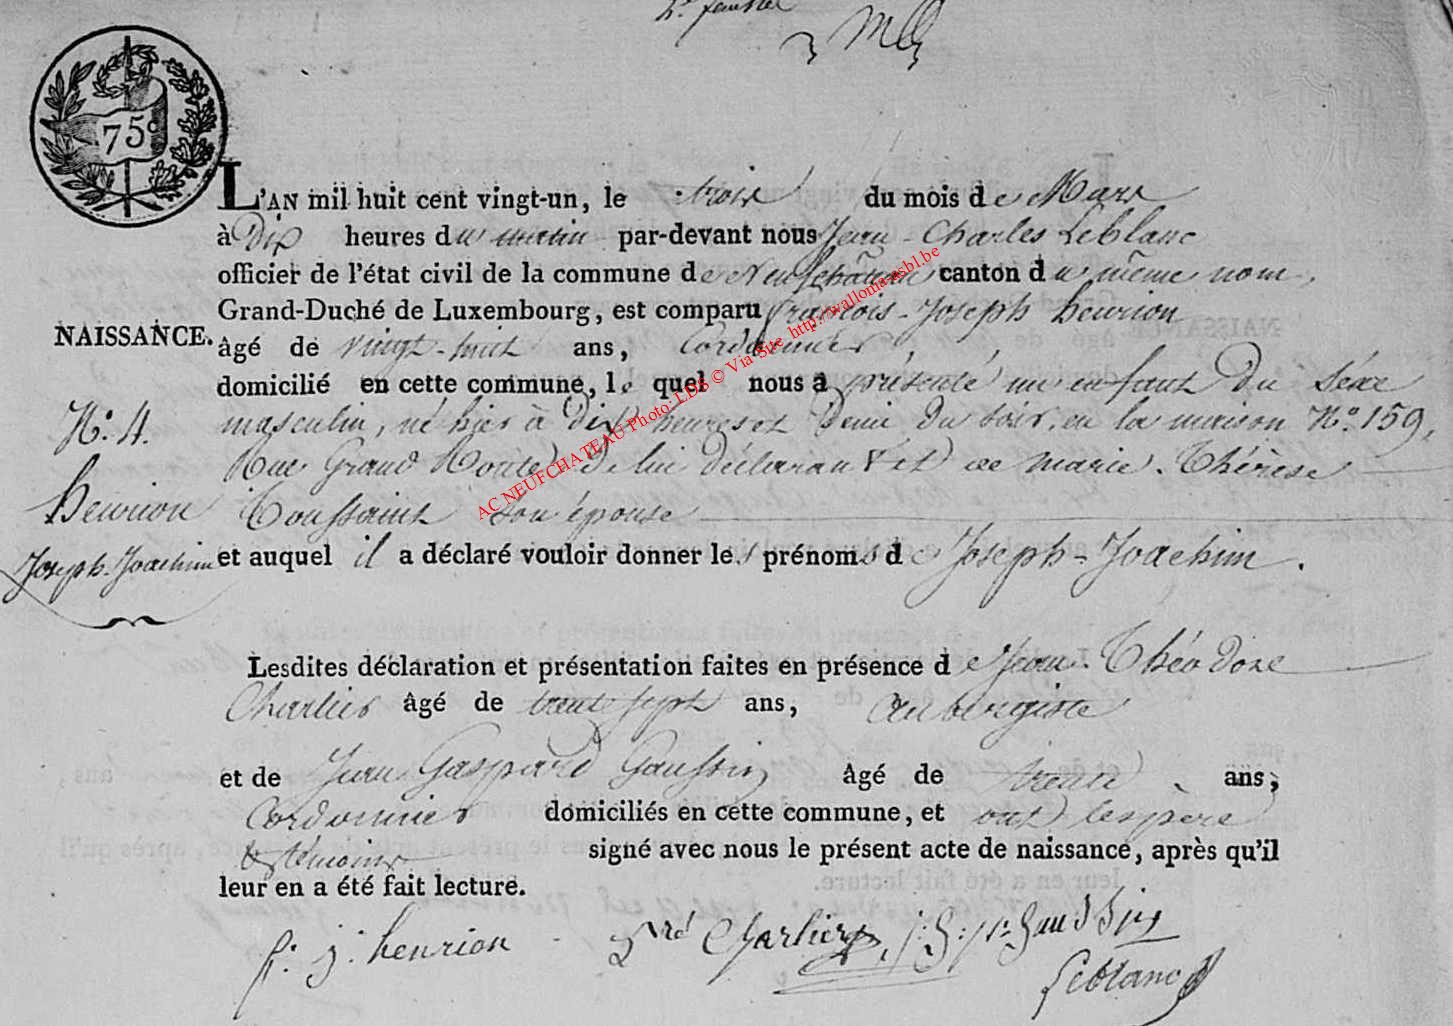 2e feuillet
75c
L'AN mil huit cent vingt-un, le trois du mois de Mars
à Dix heures du matin par-devant nous Jean-Charles Leblanc
officier de l'état civil de la commune de Neufchâteau canton du même nom.
Grand-Duché de Luxembourg, est comparu François-Joseph henrion
NAISSANCE. âgé de vingt-huit ans, Cordonnier
domicilié en cette commune, lequel nous a présenté un enfant Du Séxe
N.o 4. masculin, né hier à Dix heures et Demi du soir, en la maison N.o 159,
Rue Grand Route, De lui déclarant et de marie-Thérèse
henrion Toussaint son épouse
Joseph-Joachim et auquel il a déclaré vouloir donner les prénoms de Joseph-Joachim.
Lesdites déclaration et présentation faites en présence de Jean-Théodore
Charlier âgé de trente sept ans, Aubergiste
et de Jean Gaspard Gaussin âgé de trente ans,
Cordonnier domiciliés en cette commune, et ont les père
& témoins signé avec nous le présent acte de naissance, après qu'il
leur en a été fait lecture.
f. j. henrion Charlier
Leblanc
AC NEUFCHATEAU Photo: LDS © Via Site http://wallonia-asbl.be